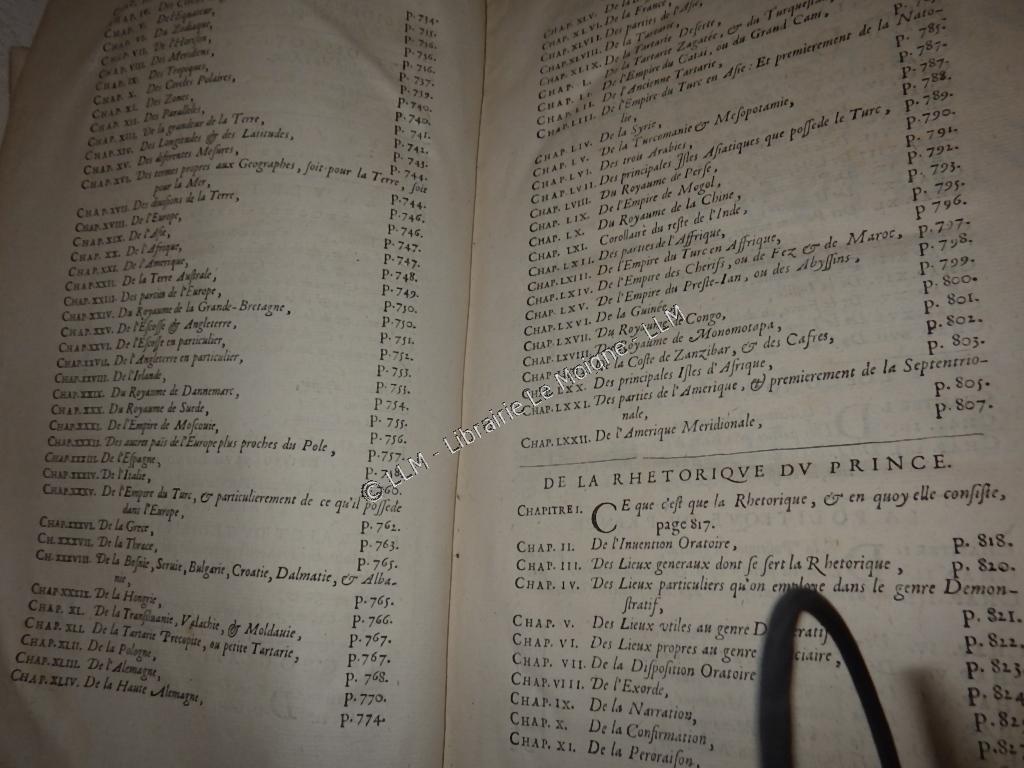 De l'Equateur, p. 714.
CHAP. VI. Du Zodiaque,
CHAP. VII. De l'Horison,
CHAP. VIII. Des Meridiens, p. 736.
CHAP. IX. Des Tropiques, p. 737.
CHAP. X. Des Cercles Polaires, p. 739.
CHAP. XI. Des Zones, p. 740.
CHAP. XII. Des Paralleles, p. 740.
CHAP. XIII. De la grandeur de la Terre, p. 741.
CHAP. XIV. Des Longitudes & des Latitudes, p. 742.
CHAP. XV. Des diferentes Mesures, p. 743.
CHAP. XVI. Des termes propres aux Geographes, soit pour la Terre, soit p. 744.
pour la Mer, p. 744.
CHAP. XVII. Des divisions de la Terre, p. 746.
CHAP. XVIII. De l'Europe, p. 746.
CHAP. XIX. De l'Asie, p. 747.
CHAP. XX. De l'Afrique, p. 747.
CHAP. XXI. De l'Amerique, p. 748.
CHAP. XXII. De la Terre Australe, p. 749.
CHAP. XXIII. Des parties de l'Europe, p. 750.
CHAP. XXIV. Du Royaume de la Grande-Bretagne, p. 750.
CHAP. XXV. De l'Escosse & Angleterre, p. 751.
CHAP. XXVI. De l'Escosse en particulier, p. 752.
CHAP. XXVII. De l'Angleterre en particulier, p. 753.
CHAP. XXVIII. De l'Irlande, p. 753.
CHAP. XXIX. Du Royaume de Dannemarc, p. 754.
CHAP. XXX. Du Royaume de Suede, p. 755.
CHAP. XXXI. De l'Empire de Moscouie, p. 756.
CHAP. XXXII. Des autres païs de l'Europe plus proches du Pole, p. 757.
CHAP. XXXIII. De l'Espagne,
CHAP. XXXIV. De l'Italie, p. 760.
CHAP. XXXV. De l'Empire du Turc, & particulierement de ce qu'il possede
dans l'Europe, p. 762.
CHAP. XXXVI. De la Grece, p. 763.
CH. XXXVII. De la Thrace, p. 765.
CH. XXXVIII. De la Bosnie, Seruie, Bulgarie, Croatie, Dalmatie, & Alba-
nie, p. 765.
CHAP. XXXIX. De la Hongrie, p. 766.
CHAP. XL. De la Transiluanie, Valachie, & Moldauie, p. 767.
CHAP. XLI. De la Tartarie Precopite, ou petite Tartarie, p. 767.
CHAP. XLII. De la Pologne, p. 768.
CHAP. XLIII. De l'Alemagne, p. 770.
CHAP. XLIV. De la Haute Alemagne, p. 774.
CHAP. XLV. De la
CHAP. XLVI. De la France,
CHAP. XLVII. Des parties de l'Asie,
CHAP. XLVIII. De la Tartarie,
CHAP. XLIX. De la Tartarie Deserte,
CHAP. L. De la Tartarie Zagatée, & du Turquestan
CHAP. LI. De l'Empire du Catai, ou du Grand Cam,
CHAP. LII. De l'Ancienne Tartarie, p. 785.
CHAP. LIII. De l'Empire du Turc en Asie: Et premierement de la Nato-
lie, p. 787.
CHAP. LIV. De la Syrie, p. 787.
CHAP. LV. De la Turcomanie & Mesopotamie, p. 788.
CHAP. LVI. Des trois Arabies, p. 789.
CHAP. LVII. Des principales Isles Asiatiques que possede le Turc, p. 790.
CHAP. LVIII. Du Royaume de Perse, p. 791.
CHAP. LIX. De l'Empire de Mogol, p. 792.
CHAP. LX. Du Royaume de la Chine, p. 793.
CHAP. LXI. Corollaire du reste de l'Inde, p. 795.
CHAP. LXII. Des parties de l'Affrique, p. 796.
CHAP. LXIII. De l'Empire du Turc en Affrique, p. 797.
CHAP. LXIV. De l'Empire des Cherifs, ou de Fez & de Maroc, p. 798.
CHAP. LXV. De l'Empire du Preste-Ian, ou des Abyssins, p. 799.
CHAP. LXVI. De la Guinée, p. 800.
CHAP. LXVII. Du Royaume de Congo, p. 801.
CHAP. LXVIII. Du Royaume de Monomotapa, p. 802.
la Coste de Zanzibar, & des Cafres, p. 803.
CHAP. LXX. Des principales Isles d'Afrique,
CHAP. LXXI. Des parties de l'Amerique, & premierement de la Septentrio-
nale, p. 805.
CHAP. LXXII. De l'Amerique Meridionale, p. 807.
DE LA RHETORIQVE DV PRINCE.
CHAPITRE I. CE que c'est que la Rhetorique, & en quoy elle consiste,
page 817.
CHAP. II. De l'Inuention Oratoire, p. 818.
CHAP. III. Des Lieux generaux dont se sert la Rhetorique, p. 820.
CHAP. IV. Des Lieux particuliers qu'on employe dans le genre Demon-
stratif, p. 821.
CHAP. V. Des Lieux vtiles au genre p. 822.
CHAP. VI. Des Lieux propres au genre p. 823
CHAP. VII. De la Disposition Oratoire
CHAP. VIII. De l'Exorde,
CHAP. IX. De la Narration,
CHAP. X. De la Confirmation,
CHAP. XI. De la Peroraison,
© LLM - Librairie Le Moigne - LLM